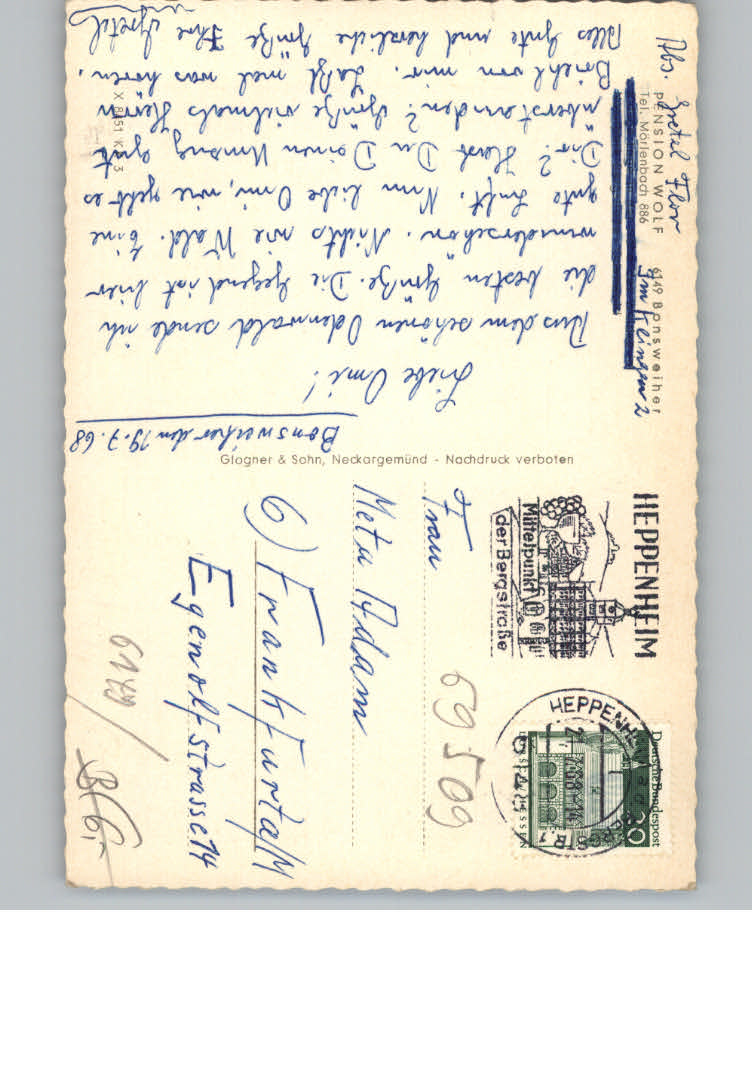 Abs. Gretel Flor
PENSION WOLF
6149 Bonsweiher
Tel. Mörlenbach 886
Im Klingen 2
Bonsweiher den 19.7.68
Liebe Omi!
Aus dem schönen Odenwald sende ich
die besten Grüße. Die Gegend ist hier
wunderschön. Nichts wie Wald. Eine
gute Luft. Nun liebe Omi, wie geht es
Dir? Hast Du Deinen Umzug gut
überstanden? Grüße vielmals Herrn
Briehl von mir. Laßt mal was hören.
Alles Gute und herzliche Grüße Ihre Gretel
Glogner & Sohn, Neckargemünd - Nachdruck verboten
HEPPENHEIM
Mittelpunkt
der Bergstraße
HEPPENHEIM
BERGSTR. 1
Deutsche Bundespost
Frau
Meta Adam
6) Frankfurt a/M
Egenolfstrasse 14
69509
6149